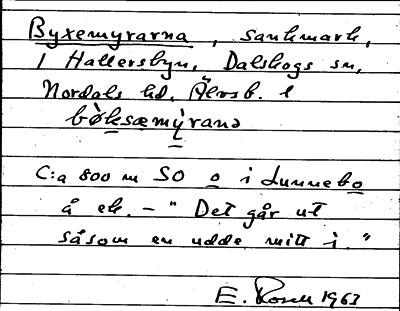 Byxemyrarna, sankmark,
i Hallersbyn, Dalskogs sn,
Nordals hd. Älvsb. l
bòksæmỳrana
C:a 800 m SO o i Lunnebo
å ek. – " Det går ut
såsom en udde mitt i. "
E. Rosell 1963